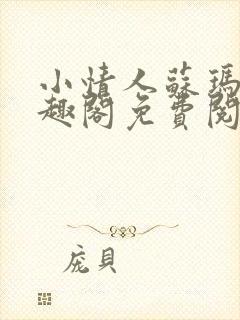 小情人蘇瑪
趣閣免費閱
庞貝